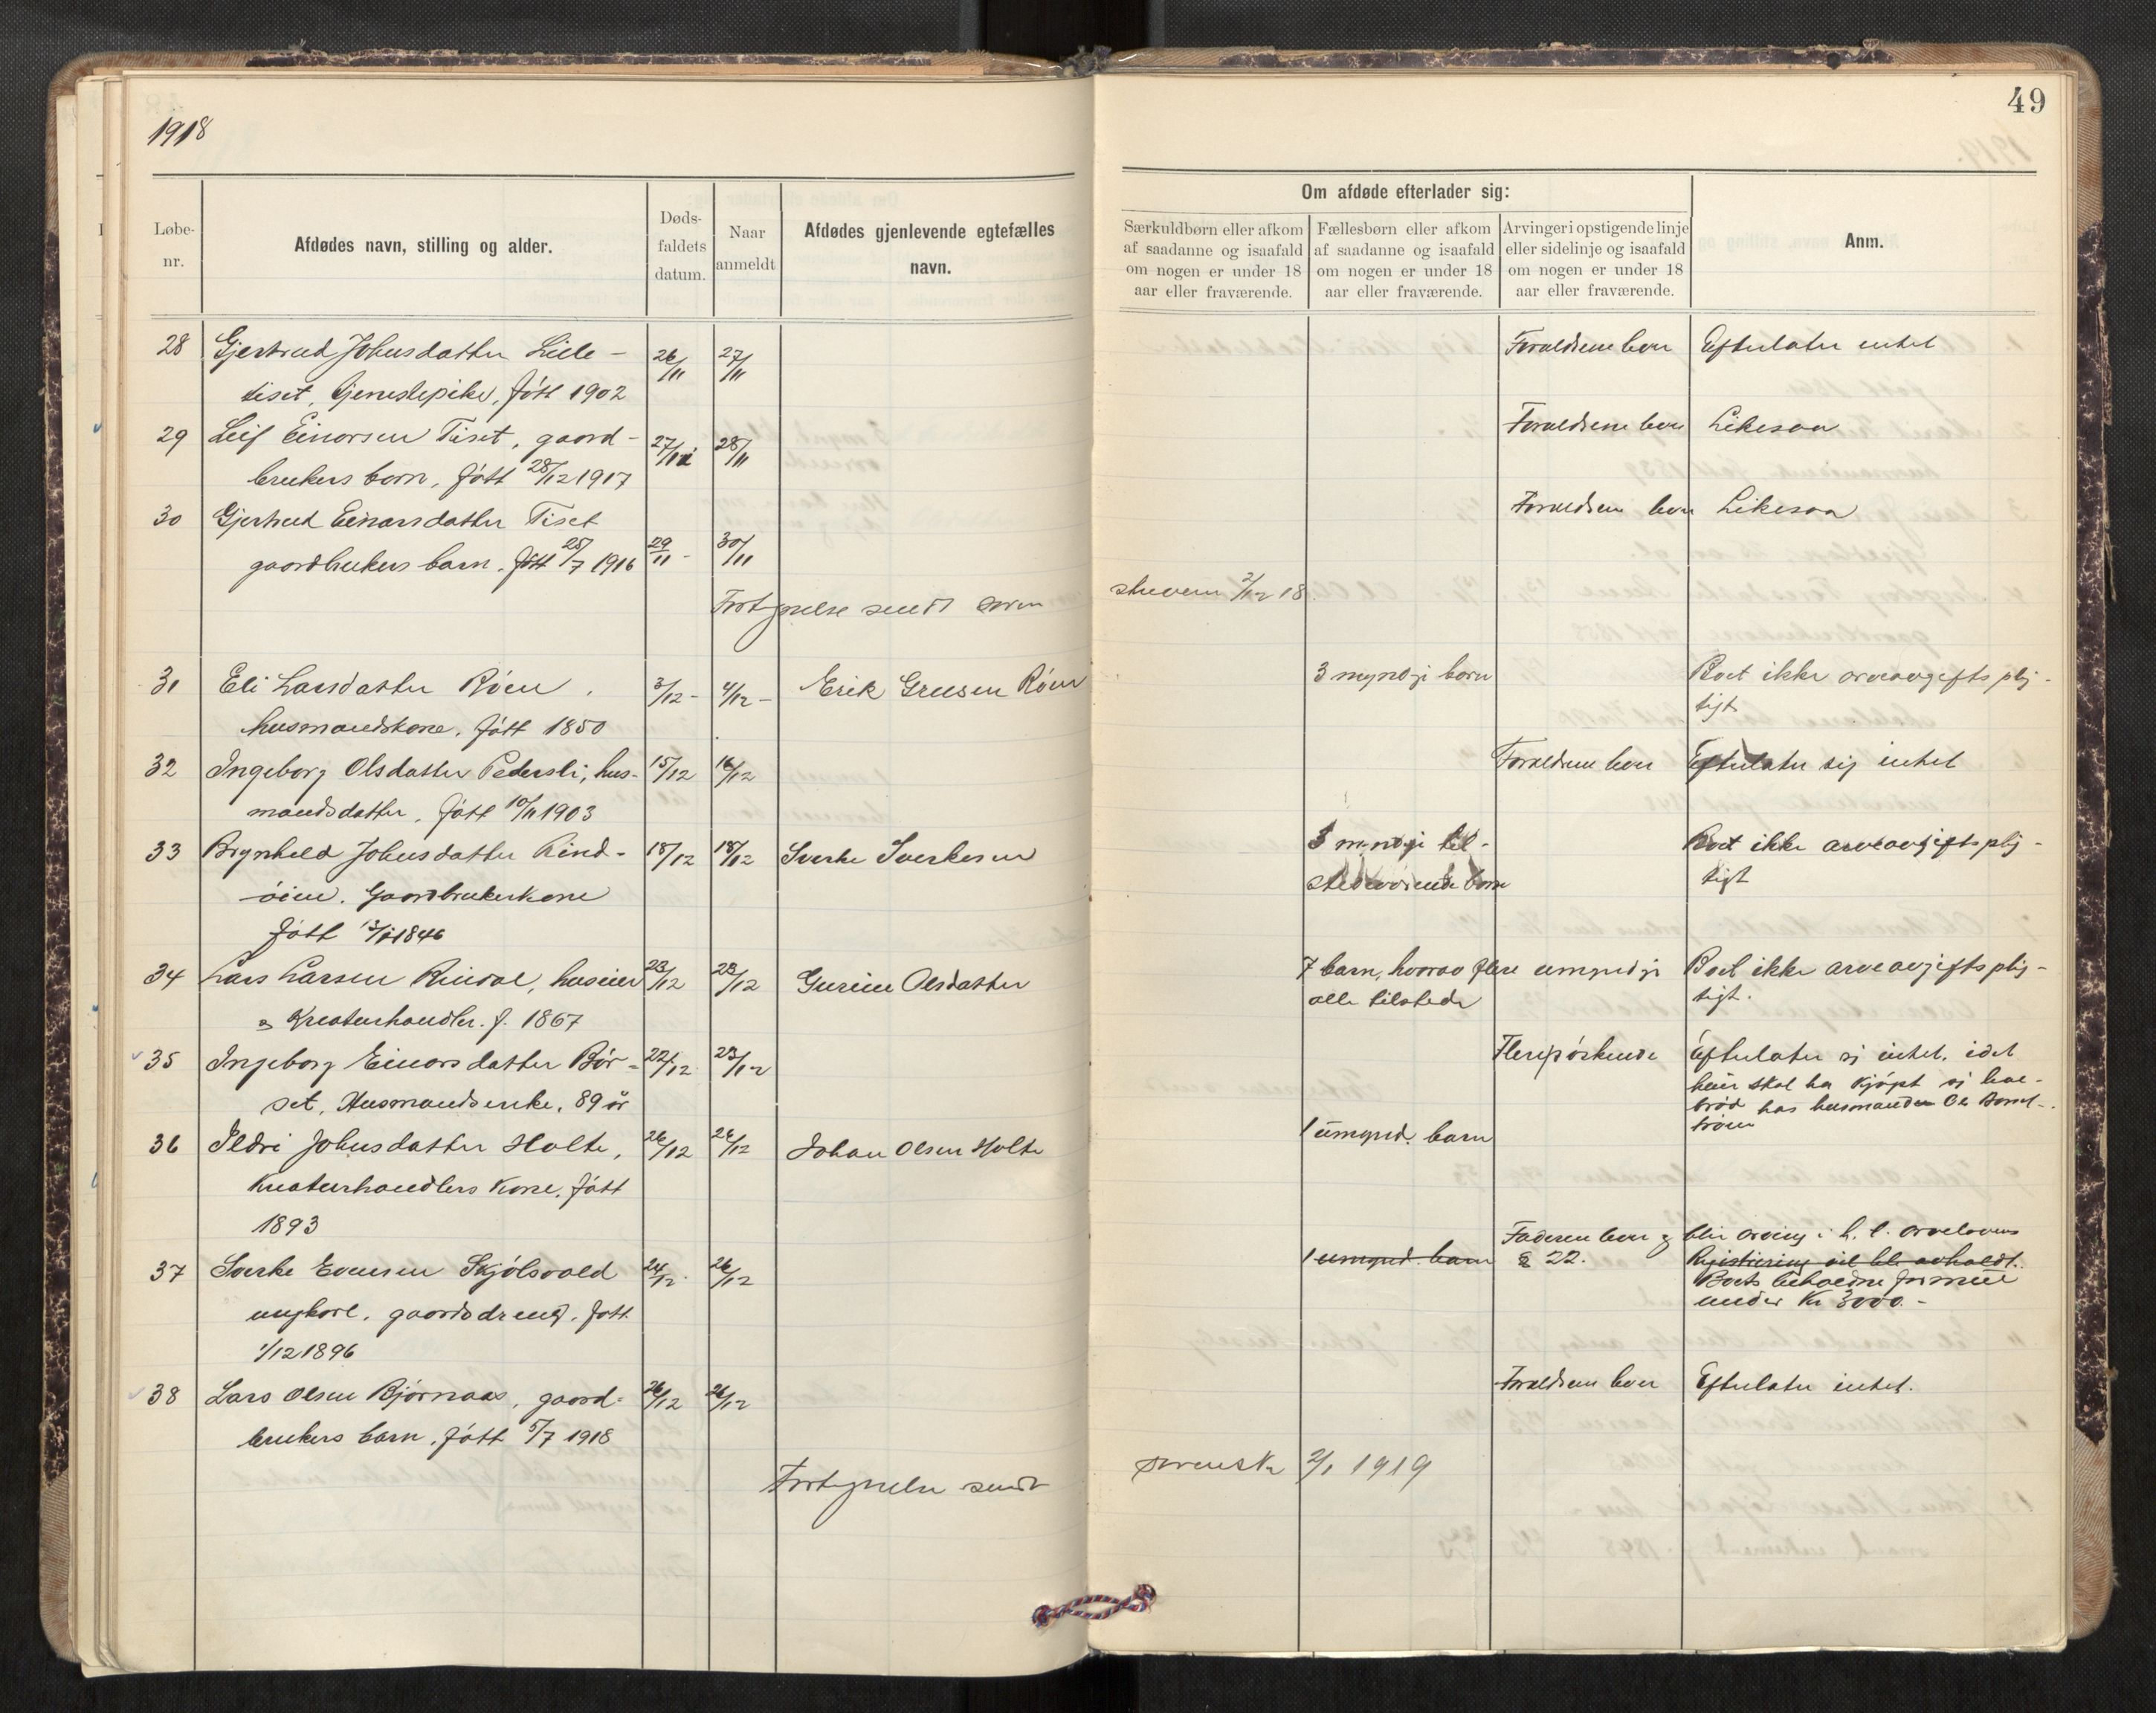 1918
49
Løbe-
nr.
Afdødes navn, stilling og alder.
Døds-
faldets
datum.
Naar
anmeldt
Afdødes gjenlevende egtefælles
navn.
Om afdøde efterlader sig:
Særkuldbørn eller afkom
af saadanne og isaafald
om nogen er under 18
aar eller fraværende.
Fællesbørn eller afkom
af saadanne og isaafald
om nogen er under 18
aar eller fraværende.
Arvinger i opstigende linje
eller sidelinje og isaafald
om nogen er under 18
aar eller fraværende.
Anm.
28 Gjertrud Johnsdatter Lille- 26/11 27/11 Forældrene lever Efterlater intet
tiset, tjenestepike, født 1902
29 Leif Einarsen Tiset, gaard- 27/11 28/11 Forældrene lever Likesaa
brukers barn, født 28/12 1917
30 Gjertrud Einarsdatter Tiset Forældrene lever Likesaa
gaardbrukers barn. født 25/7 1916 29/11 - 30/11
Fortegnelse sendt soren
skriveren 2/12 18
31 Eli Larsdatter Röen, 3/12 - 4/12 - Erik Gulsen Röen 3 myndige barn Boet ikke arveavgiftsplig-
husmandskone, født 1850 tigt
32 Ingeborg Olsdatter Pedersli, hus- 15/12 16/12 Forældrene lever Efterlater sig intet
mandsdatter, født 10/11 1903
33 Brynhild Johnsdatter Rind- 18/12 18/12 Sverke Sverkesen 3 myndige til- Boet ikke arveavgiftsplig-
öien. Gaardbrukerkone stedeværende barn tigt
født 1846
34 Lars Larsen Rindal, huseier 23/12 23/12 Gurine Olsdatter 7 barn, hvorav flere umyndige Boet ikke arveavgiftsplig-
& Kreaturhandler. f. 1867 alle tilstede tigt.
35 Ingeborg Einarsdatter Bør- 22/12 23/12 Flere søskende Efterlater sig intet, idet
set, Husmandsenke, 89 år hun skal ha kjøpt sig leve-
brød hos husmanden Ole Børset-
trøen
36 Ildri Johnsdatter Holte, 26/12 26/12 Johan Olsen Holte 1 umynd. barn
Kreaturhandlers Kone, født
1893
37 Sverke Evensen Skjølsvold 24/12 26/12 1 umynd. barn Faderen lever & blir arving i h. t. arvelovens
§ 22. Registrering vil bli avholdt.
ungkarl, gaardsdreng, født Boets beholdne formue
1/12 1896 under Kr 3000.-
38 Lars Olsen Bjørnaas, gaard- 26/12 26/12 Forældrene lever Efterlater intet.
brukers barn, født 5/7 1918
Fortegnelse sendt
sorensk 2/1 1919